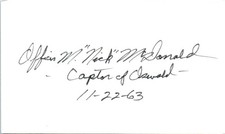 Officer M "Nick" McDonald
- Captor of Oswald -
11-22-63